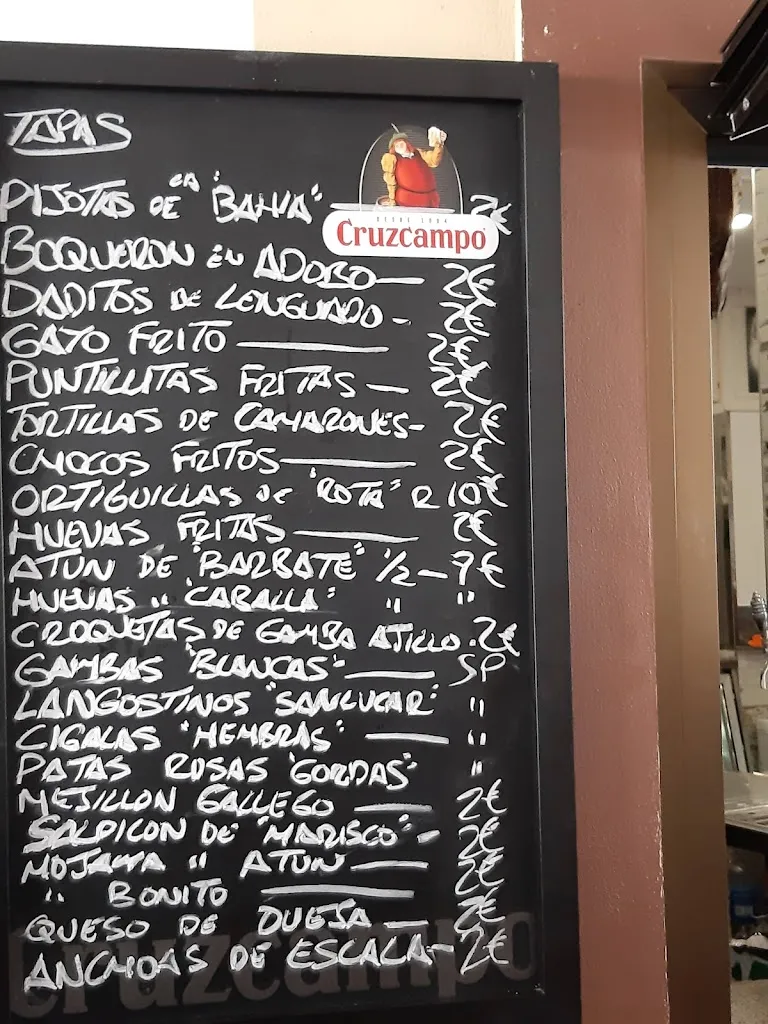 TAPAS
PIJOTAS DE LA "BAHIA" 2€
DESDE 1904
Cruzcampo
BOQUERON EN ADOBO — 2€
DADITOS DE LENGUADO - 2€
GAYO FRITO — 2€
PUNTILLITAS FRITAS — 2€
TORTILLAS DE CAMARONES- 2€
CHOCOS FRITOS — 2€
ORTIGUILLAS DE "ROTA" R 10€
HUEVAS FRITAS — 2€
ATUN DE "BARBATE" 1/2 - 9€
HUEVAS " "CABALLA" " "
CROQUETAS DE GAMBA AJILLO. 2€
GAMBAS "BLANCAS" — SP
LANGOSTINOS "SANLUCAR" "
CIGALAS "HEMBRAS" — "
PATAS ROSAS "GORDAS" "
MEJILLON GALLEGO — 2€
SALPICON DE "MARISCO" - 2€
MOJAMA " ATUN — 2€
" BONITO — 2€
QUESO DE OVEJA — 2€
ANCHOAS DE ESCALA - 2€
Cruzcampo